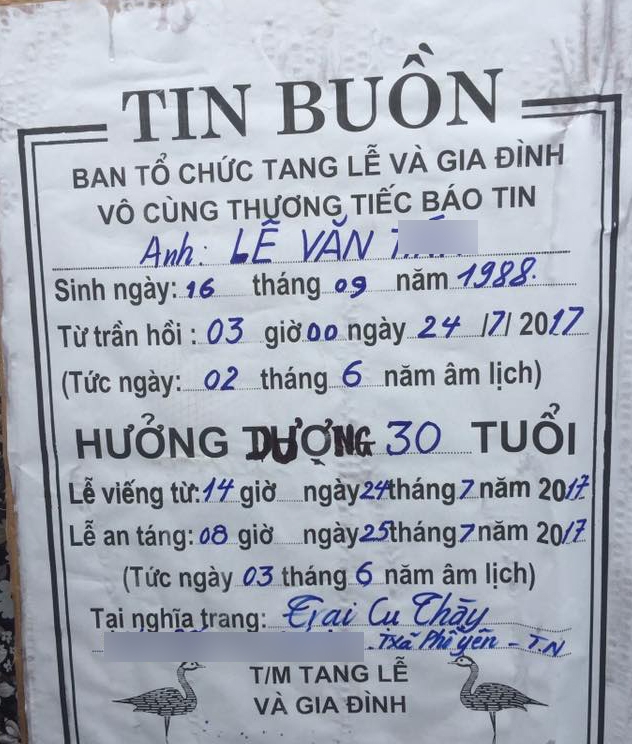 TIN BUỒN
BAN TỔ CHỨC TANG LỄ VÀ GIA ĐÌNH
VÔ CÙNG THƯƠNG TIẾC BÁO TIN
Anh: LÊ VĂN
Sinh ngày: 16 tháng 09 năm 1988
Từ trần hồi : 03 giờ 00 ngày 24 /7/ 2017
(Tức ngày: 02 tháng 6 năm âm lịch)
HƯỞNG DƯỢNG 30 TUỔI
Lễ viếng từ: 14 giờ ngày 24 tháng 7 năm 2017
Lễ an táng: 08 giờ ngày 25 tháng 7 năm 2017
(Tức ngày 03 tháng 6 năm âm lịch)
Tại nghĩa trang: Trai Cu Thầy
Txã Phổ yên - T.N
T/M TANG LỄ
VÀ GIA ĐÌNH